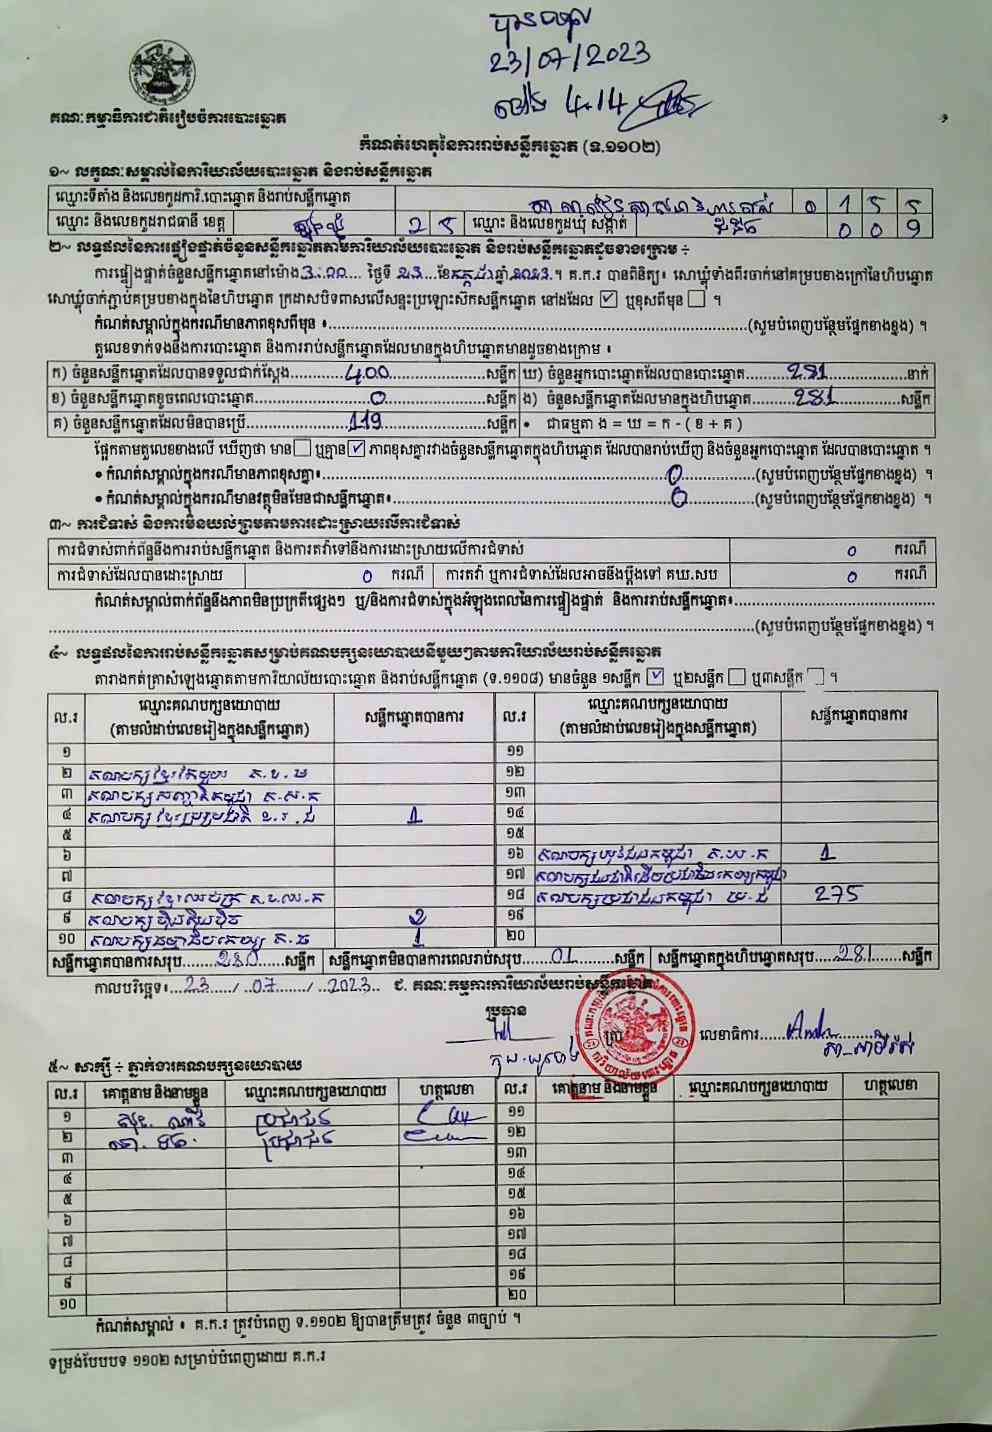 23/07/2023
ម៉ោង 4.14
គណៈកម្មាធិការជាតិរៀបចំការបោះឆ្នោត
កំណត់ហេតុនៃការរាប់សន្លឹកឆ្នោត (ទ.១១០២)
១~ លក្ខណៈសម្គាល់នៃការិយាល័យបោះឆ្នោត និងរាប់សន្លឹកឆ្នោត
ឈ្មោះទីតាំង និងលេខកូដការិ.បោះឆ្នោត និងរាប់សន្លឹកឆ្នោត 0 1 5 5
ឈ្មោះ និងលេខកូដរាជធានី ខេត្ត ត្បូងឃ្មុំ 2 5 ឈ្មោះ និងលេខកូដឃុំ សង្កាត់ 0 0 9
២~ លទ្ធផលនៃការផ្ទៀងផ្ទាត់ចំនួនសន្លឹកឆ្នោតតាមការិយាល័យបោះឆ្នោត និងរាប់សន្លឹកឆ្នោតដូចខាងក្រោម ÷
ការផ្ទៀងផ្ទាត់ចំនួនសន្លឹកឆ្នោតនៅម៉ោង 3.00 ថ្ងៃទី ២៣ ខែ កក្កដា ឆ្នាំ ២០២៣ ។ គ.ក.រ បានពិនិត្យ៖ សោឃ្លុំទាំងពីរចាក់នៅគម្របខាងក្រៅនៃហិបឆ្នោត
សោឃ្លុំចាក់ភ្ជាប់គម្របខាងក្នុងនៃហិបឆ្នោត ក្រដាសបិទពាសលើសន្ទះប្រឡោះស៊កសន្លឹកឆ្នោត នៅដដែល ☑ ឬខុសពីមុន ☐ ។
កំណត់សម្គាល់ក្នុងករណីមានភាពខុសពីមុន ៖ (សូមបំពេញបន្ថែមផ្នែកខាងខ្នង) ។
តួលេខទាក់ទងនឹងការបោះឆ្នោត និងការរាប់សន្លឹកឆ្នោតដែលមានក្នុងហិបឆ្នោតមានដូចខាងក្រោម ៖
ក) ចំនួនសន្លឹកឆ្នោតដែលបានទទួលជាក់ស្តែង 400 សន្លឹក ឃ) ចំនួនអ្នកបោះឆ្នោតដែលបានបោះឆ្នោត 281 នាក់
ខ) ចំនួនសន្លឹកឆ្នោតខូចពេលបោះឆ្នោត 0 សន្លឹក ង) ចំនួនសន្លឹកឆ្នោតដែលមានក្នុងហិបឆ្នោត 281 សន្លឹក
គ) ចំនួនសន្លឹកឆ្នោតដែលមិនបានប្រើ 119 សន្លឹក • ជាធម្មតា ង = ឃ = ក - ( ខ + គ )
ផ្អែកតាមតួលេខខាងលើ ឃើញថា មាន ☐ ឬគ្មាន ☑ ភាពខុសគ្នារវាងចំនួនសន្លឹកឆ្នោតក្នុងហិបឆ្នោត ដែលបានរាប់ឃើញ និងចំនួនអ្នកបោះឆ្នោត ដែលបានបោះឆ្នោត ។
• កំណត់សម្គាល់ក្នុងករណីមានភាពខុសគ្នា៖ 0 (សូមបំពេញបន្ថែមផ្នែកខាងខ្នង) ។
• កំណត់សម្គាល់ក្នុងករណីមានវត្ថុមិនមែនជាសន្លឹកឆ្នោត៖ 0 (សូមបំពេញបន្ថែមផ្នែកខាងខ្នង) ។
៣~ ការជំទាស់ និងការមិនយល់ព្រមតាមការដោះស្រាយលើការជំទាស់
ការជំទាស់ពាក់ព័ន្ធនឹងការរាប់សន្លឹកឆ្នោត និងការតវ៉ាទៅនឹងការដោះស្រាយលើការជំទាស់ 0 ករណី
ការជំទាស់ដែលបានដោះស្រាយ 0 ករណី ការតវ៉ា ឬការជំទាស់ដែលអាចនឹងប្តឹងទៅ គឃ.សប 0 ករណី
កំណត់សម្គាល់ពាក់ព័ន្ធនឹងភាពមិនប្រក្រតីផ្សេងៗ ឬ/និងការជំទាស់ក្នុងអំឡុងពេលនៃការផ្ទៀងផ្ទាត់ និងការរាប់សន្លឹកឆ្នោត៖
(សូមបំពេញបន្ថែមផ្នែកខាងខ្នង) ។
៤~ លទ្ធផលនៃការរាប់សន្លឹកឆ្នោតសម្រាប់គណបក្សនយោបាយនីមួយៗតាមការិយាល័យរាប់សន្លឹកឆ្នោត
តារាងកត់ត្រាសំឡេងឆ្នោតតាមការិយាល័យបោះឆ្នោត និងរាប់សន្លឹកឆ្នោត (ទ.១១០៨) មានចំនួន ១សន្លឹក ☑ ឬ២សន្លឹក ☐ ឬ៣សន្លឹក ☐ ។
ល.រ ឈ្មោះគណបក្សនយោបាយ (តាមលំដាប់លេខរៀងក្នុងសន្លឹកឆ្នោត) សន្លឹកឆ្នោតបានការ ល.រ ឈ្មោះគណបក្សនយោបាយ (តាមលំដាប់លេខរៀងក្នុងសន្លឹកឆ្នោត) សន្លឹកឆ្នោតបានការ
១ ១១
២ គណបក្សខ្មែរតែមួយ គ.ខ.ម ១២
៣ គណបក្សសញ្ជាតិកម្ពុជា គ.ស.ក ១៣
៤ គណបក្សខ្មែររួបរួមជាតិ ខ.រ.ជ 1 ១៤
៥ ១៥
៦ ១៦ គណបក្សយុវជនកម្ពុជា គ.យ.ក 1
៧ ១៧ គណបក្សជនជាតិដើមប្រជាធិបតេយ្យកម្ពុជា
៨ គណបក្សខ្មែរឈប់ក្រ គ.ខ.ឈ.ក ១៨ គណបក្សប្រជាជនកម្ពុជា ប្រ.ជ 275
៩ គណបក្សហ្វ៊ុនស៊ិនប៉ិច 2 ១៩
១០ គណបក្សធម្មាធិបតេយ្យ គ.ធ 1 ២០
សន្លឹកឆ្នោតបានការសរុប 280 សន្លឹក សន្លឹកឆ្នោតមិនបានការពេលរាប់សរុប 01 សន្លឹក សន្លឹកឆ្នោតក្នុងហិបឆ្នោតសរុប 281 សន្លឹក
កាលបរិច្ឆេទ៖ 23 / 07 / 2023 ជ. គណៈកម្មការការិយាល័យរាប់សន្លឹកឆ្នោត
ប្រធាន
លេខាធិការ
៥~ សាក្សី ÷ ភ្នាក់ងារគណបក្សនយោបាយ
ល.រ គោត្តនាម និងនាមខ្លួន ឈ្មោះគណបក្សនយោបាយ ហត្ថលេខា ល.រ គោត្តនាម និងនាមខ្លួន ឈ្មោះគណបក្សនយោបាយ ហត្ថលេខា
១ ប្រជាជន ១១
២ ប្រជាជន ១២
៣ ១៣
៤ ១៤
៥ ១៥
៦ ១៦
៧ ១៧
៨ ១៨
៩ ១៩
១០ ២០
កំណត់សម្គាល់ ៖ គ.ក.រ ត្រូវបំពេញ ទ.១១០២ ឱ្យបានត្រឹមត្រូវ ចំនួន ៣ច្បាប់ ។
ទម្រង់បែបបទ ១១០២ សម្រាប់បំពេញដោយ គ.ក.រ